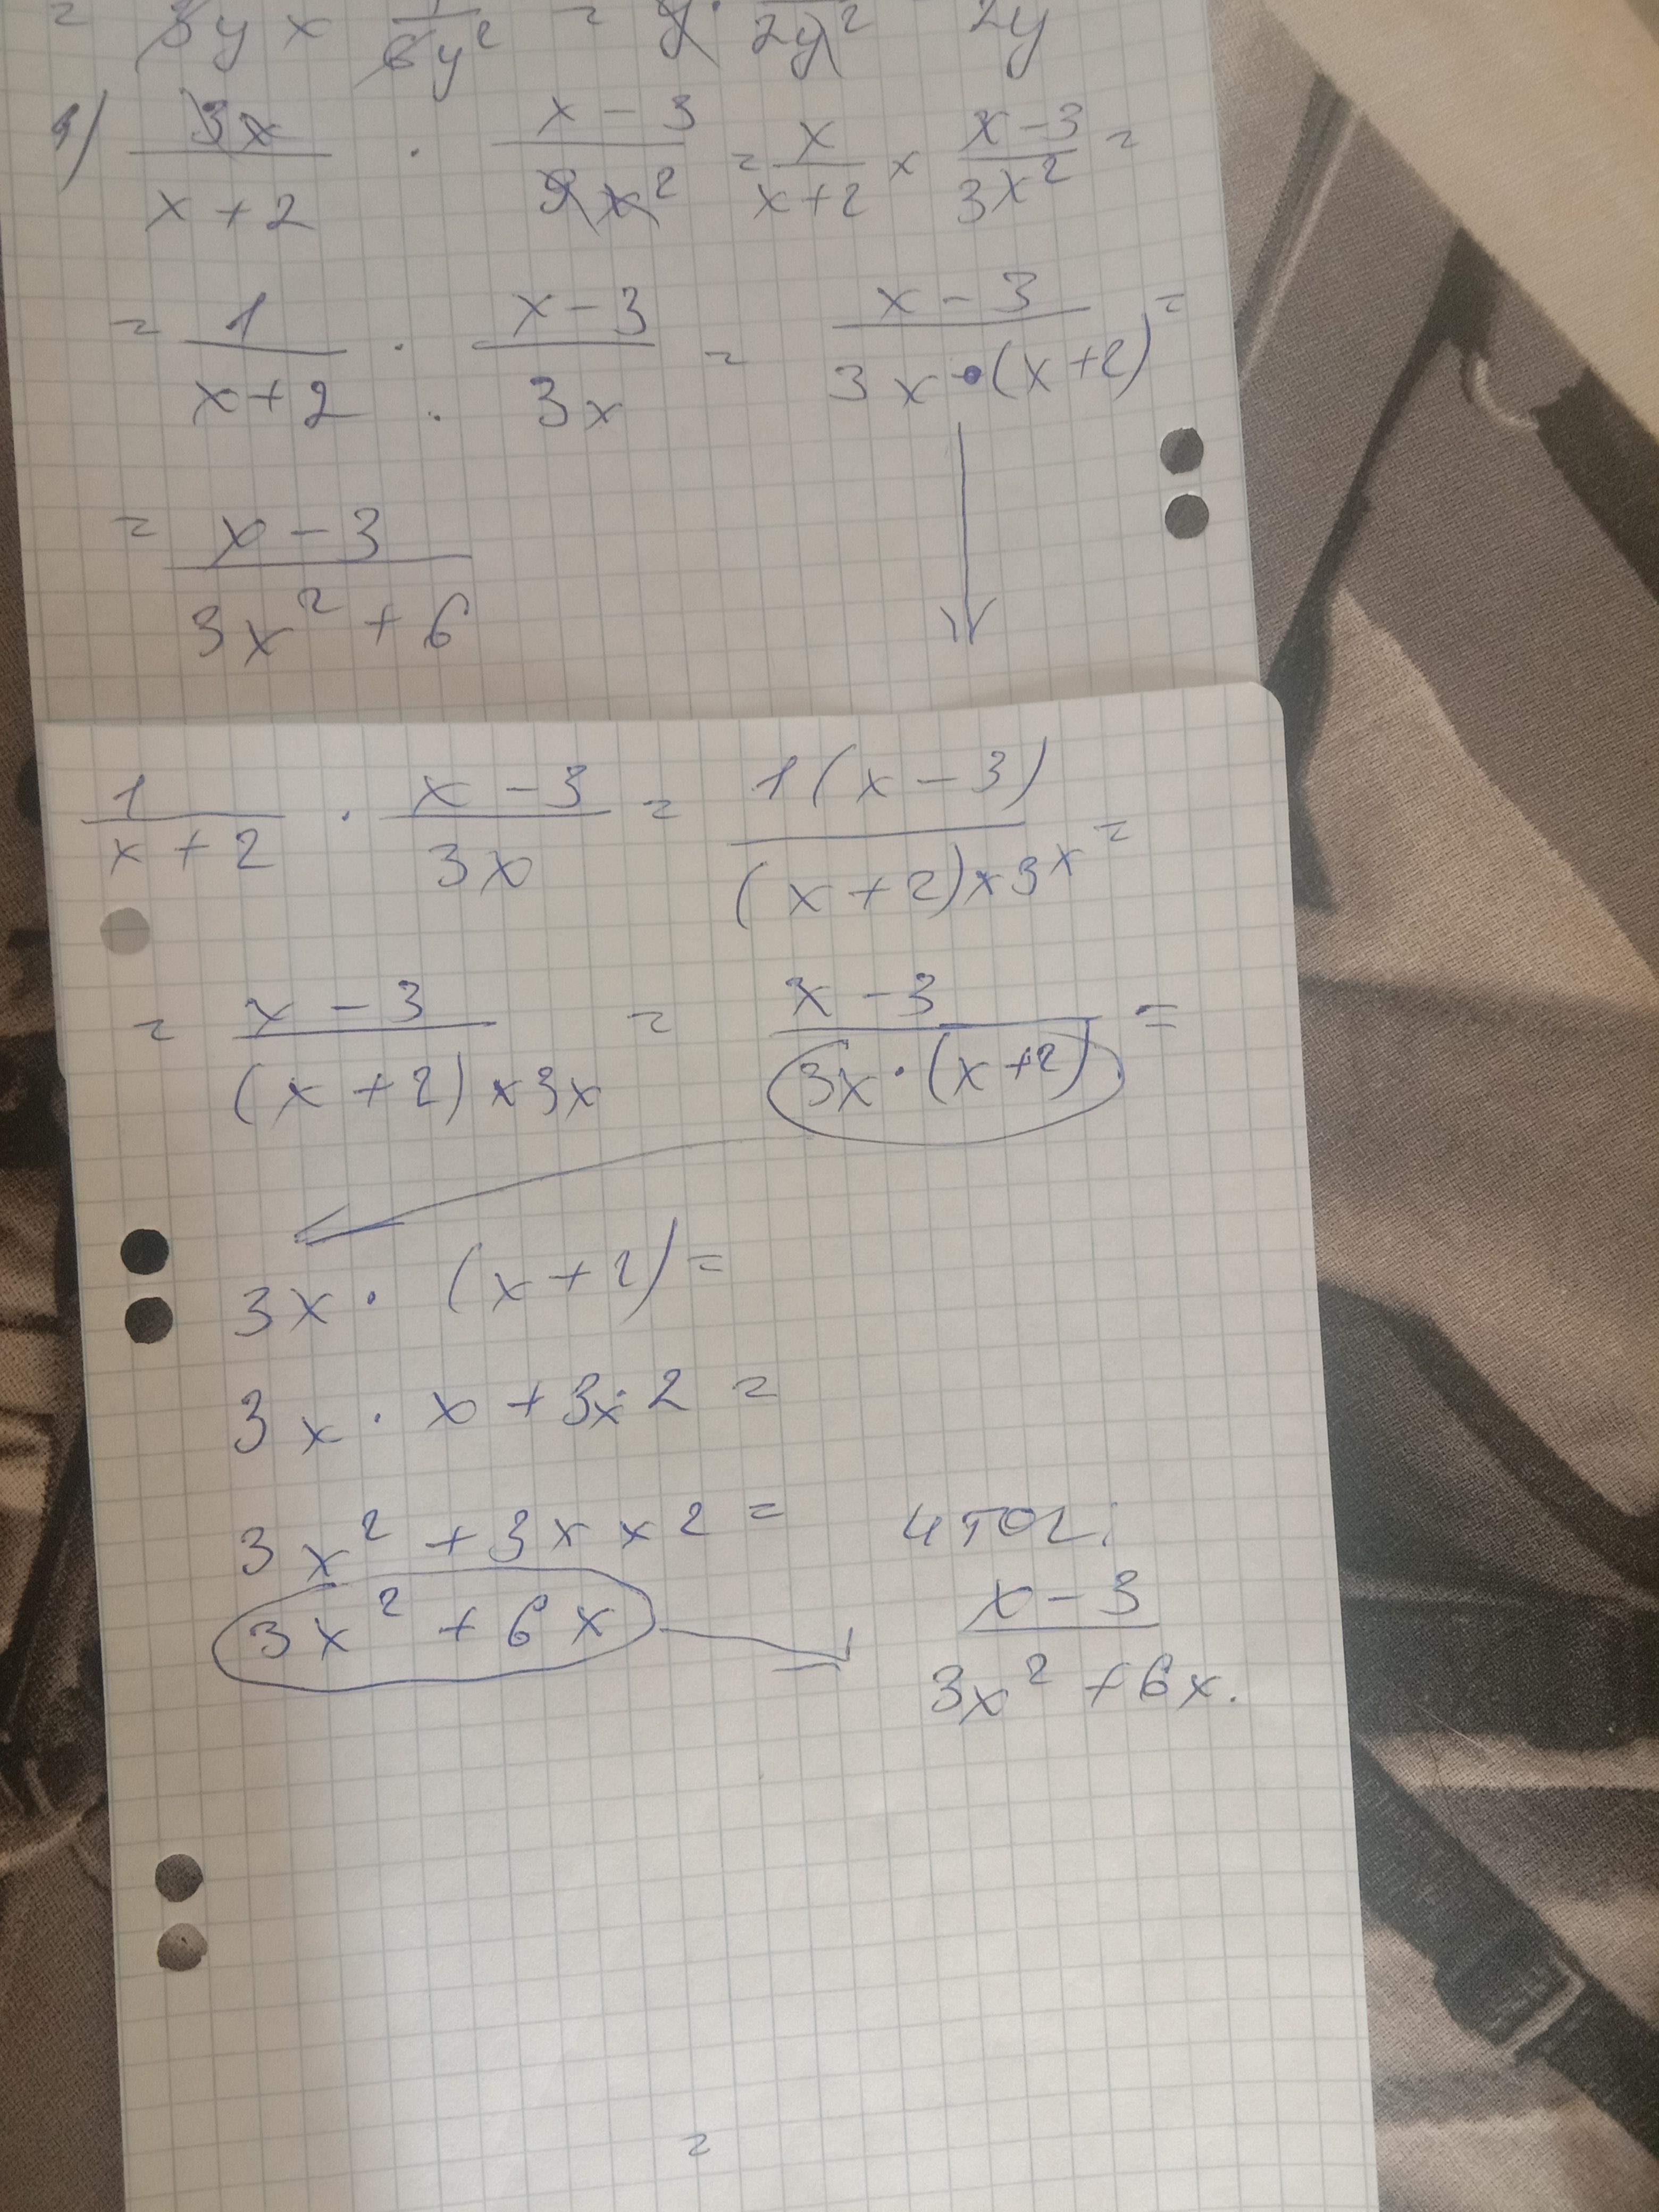 = 3y × 1/6y² = y · 1/2y² = 1/2y
3x/(x + 2) · (x − 3)/9x² = x/(x+2) × (x−3)/3x² =
= 1/(x+2) · (x−3)/3x = (x−3)/(3x·(x+2)) =
= (x−3)/(3x² + 6)
1/(x + 2) · (x − 3)/3x = 1(x − 3)/((x + 2)×3x) =
= (x − 3)/((x + 2)×3x) = (x − 3)/(3x·(x+2)) =
3x · (x + 2) =
3x · x + 3x·2 =
3x² + 3x × 2 =
3x² + 6x
итог:
(x − 3)/(3x² + 6x).
=